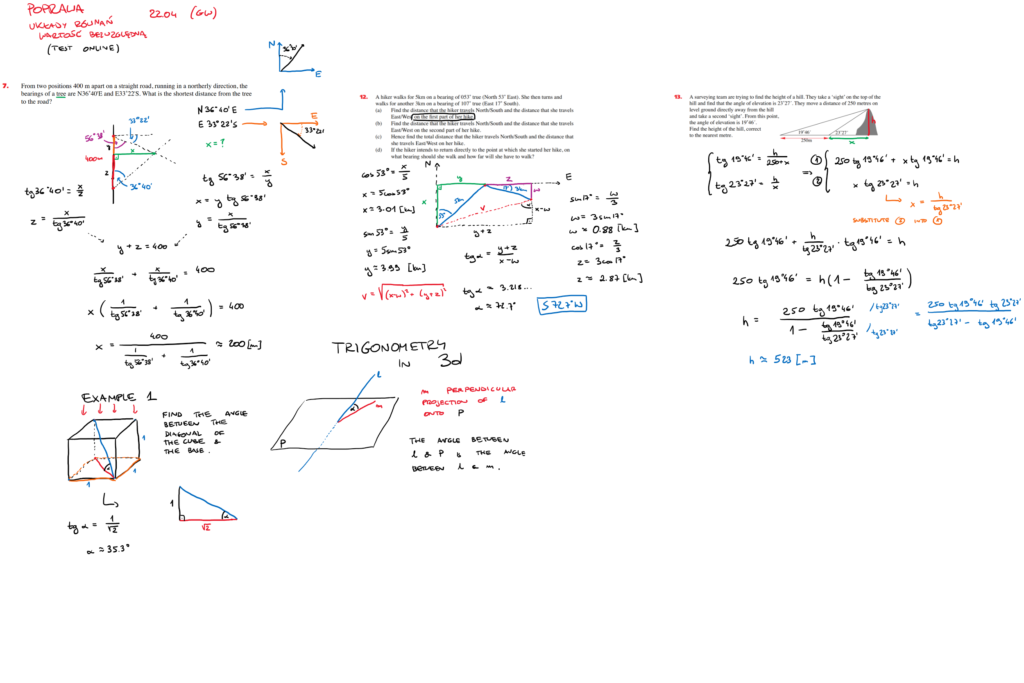 POPRAWA 22.04 (GW)
UKŁADY RÓWNAŃ
WARTOŚĆ BEZWZGLĘDNA
(TEST ONLINE)
N
36°40'
E
7. From two positions 400 m apart on a straight road, running in a northerly direction, the
bearings of a tree are N36°40'E and E33°22'S. What is the shortest distance from the tree
to the road?
N 36°40' E
E 33°22' S
x = ?
E
33°22'
S
33°22'
56°38'
y
x
400m
z
36°40'
tg 36°40' = x/z
z = x/tg 36°40'
tg 56°38' = x/y
x = y tg 56°38'
y = x/tg 56°38'
y + z = 400
x/tg 56°38' + x/tg 36°40' = 400
x (1/tg 56°38' + 1/tg 36°40') = 400
x = 400/(1/tg 56°38' + 1/tg 36°40') ≈ 200 [m]
12. A hiker walks for 5km on a bearing of 053° true (North 53° East). She then turns and
walks for another 3km on a bearing of 107° true (East 17° South).
(a) Find the distance that the hiker travels North/South and the distance that she travels
East/West on the first part of her hike.
(b) Find the distance that the hiker travels North/South and the distance that she travels
East/West on the second part of her hike.
(c) Hence find the total distance that the hiker travels North/South and the distance that
she travels East/West on her hike.
(d) If the hiker intends to return directly to the point at which she started her hike, on
what bearing should she walk and how far will she have to walk?
cos 53° = x/5
x = 5cos 53°
x = 3.01 [km]
sin 53° = y/5
y = 5sin 53°
y = 3.99 [km]
v = √((x-w)² + (y+z)²)
N
y
z
E
x
5km
53
17
3km
w
v
α
x-w
y+z
tg α = (y+z)/(x-w)
tg α = 3.218...
α = 72.7°
sin 17° = w/3
w = 3 sin 17°
w ≈ 0.88 [km]
cos 17° = z/3
z = 3cos 17°
z ≈ 2.87 [km]
S 72.7° W
13. A surveying team are trying to find the height of a hill. They take a 'sight' on the top of the
hill and find that the angle of elevation is 23°27'. They move a distance of 250 metres on
level ground directly away from the hill
and take a second 'sight'. From this point,
the angle of elevation is 19°46'.
Find the height of the hill, correct
to the nearest metre.
19°46'
23°27'
250m
x
h
tg 19°46' = h/(250+x)
tg 23°27' = h/x
=>
① 250 tg 19°46' + x tg 19°46' = h
② x tg 23°27' = h
x = h/tg 23°27'
SUBSTITUTE ② INTO ①
250 tg 19°46' + h/tg 23°27' · tg 19°46' = h
250 tg 19°46' = h(1 - tg 19°46'/tg 23°27')
h = 250 tg 19°46'/(1 - tg 19°46'/tg 23°27') /tg 23°27' /tg 23°27' = 250 tg 19°46' tg 23°27'/(tg 23°27' - tg 19°46')
h ≈ 523 [m]
TRIGONOMETRY
IN 3d
l
α
m
P
m PERPENDICULAR
PROJECTION OF l
ONTO P
THE ANGLE BETWEEN
l & P IS THE ANGLE
BETWEEN l & m.
EXAMPLE 1
FIND THE ANGLE
BETWEEN THE
DIAGONAL OF
THE CUBE &
THE BASE.
1
α
1
1
tg α = 1/√2
α ≈ 35.3°
1
α
√2